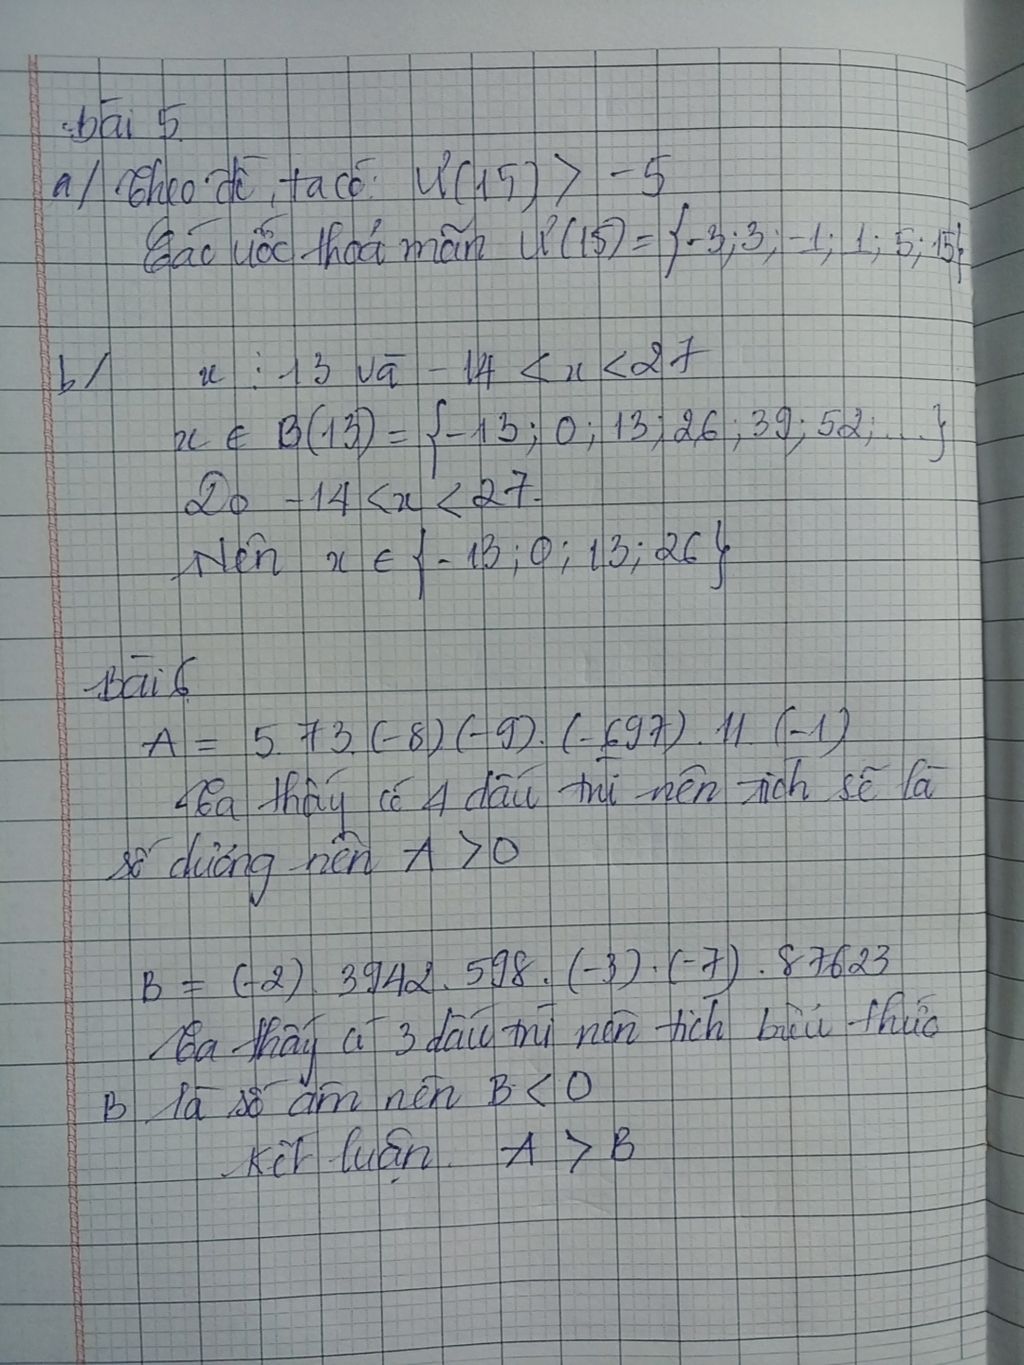 bài 5
a/ Theo đề, ta có: Ư(15) > -5
Các ước thoả mãn Ư(15) = {-3; 3; -1; 1; 5; 15}
b/ x ⋮ 13 và -14 < x < 27
x ∈ B(13) = {-13; 0; 13; 26; 39; 52; ...}
Do -14 < x < 27.
Nên x ∈ {-13; 0; 13; 26}
Bài 6
A = 5. 73. (-8) (-9). (-697). 11. (-1)
Ta thấy có 4 dấu trừ nên tích sẽ là
số dương nên A > 0
B = (-2). 3942. 598. (-3). (-7). 87623
Ta thấy có 3 dấu trừ nên tích biểu thức
B là số âm nên B < 0
Kết luận. A > B